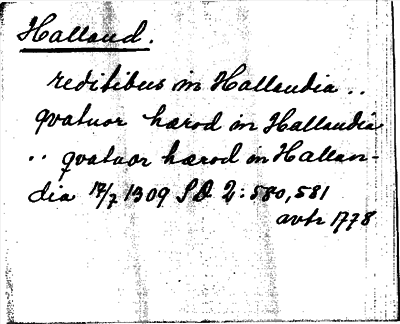 Halland.
reditibus in Hallandia ..
qvatuor hærod in Hallandia
.. qvatuor hærod in Hallan-
dia 17/7 1309 SD 2:580,581
avtr 1778